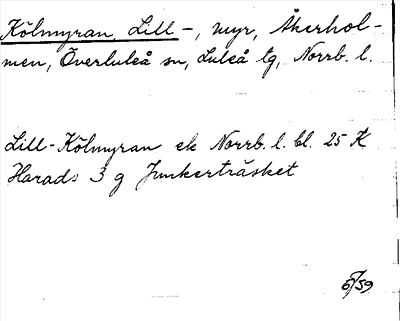 Kölmyran, Lill-, myr, Åkerhol-
men, Överluleå sn, Luleå tg, Norrb. l.
Lill-Kölmyran ek Norrb. l. bl. 25 K
Harads 3 g Junkerträsket
6/59